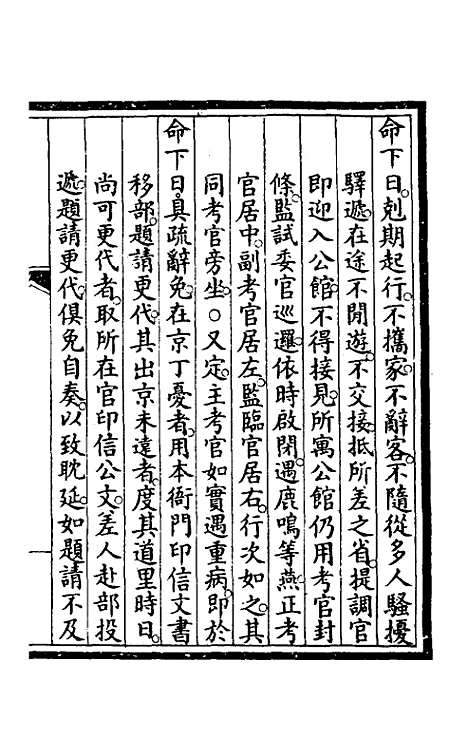 命下日。剋期起行。不攜家。不辭客。不隨從多人騷擾
驛遞。在途不閒遊。不交接。抵所差之省。提調官
即迎入公館。不得接見。所寓公館仍用考官封
條。監試委官巡邏。依時啟閉。遇鹿鳴等燕。正考
官居中。副考官居左。監臨官居右。行次如之。其
同考官旁坐。○又定。主考官如實遇重病。即於
命下日。具疏辭免。在京丁憂者。用本衙門印信文書
移部。題請更代。其出京未遠者。度其道里時日。
尚可更代者。取所在官印信公文。差人赴部投
遞。題請更代。俱免自奏。以致耽延。如題請不及